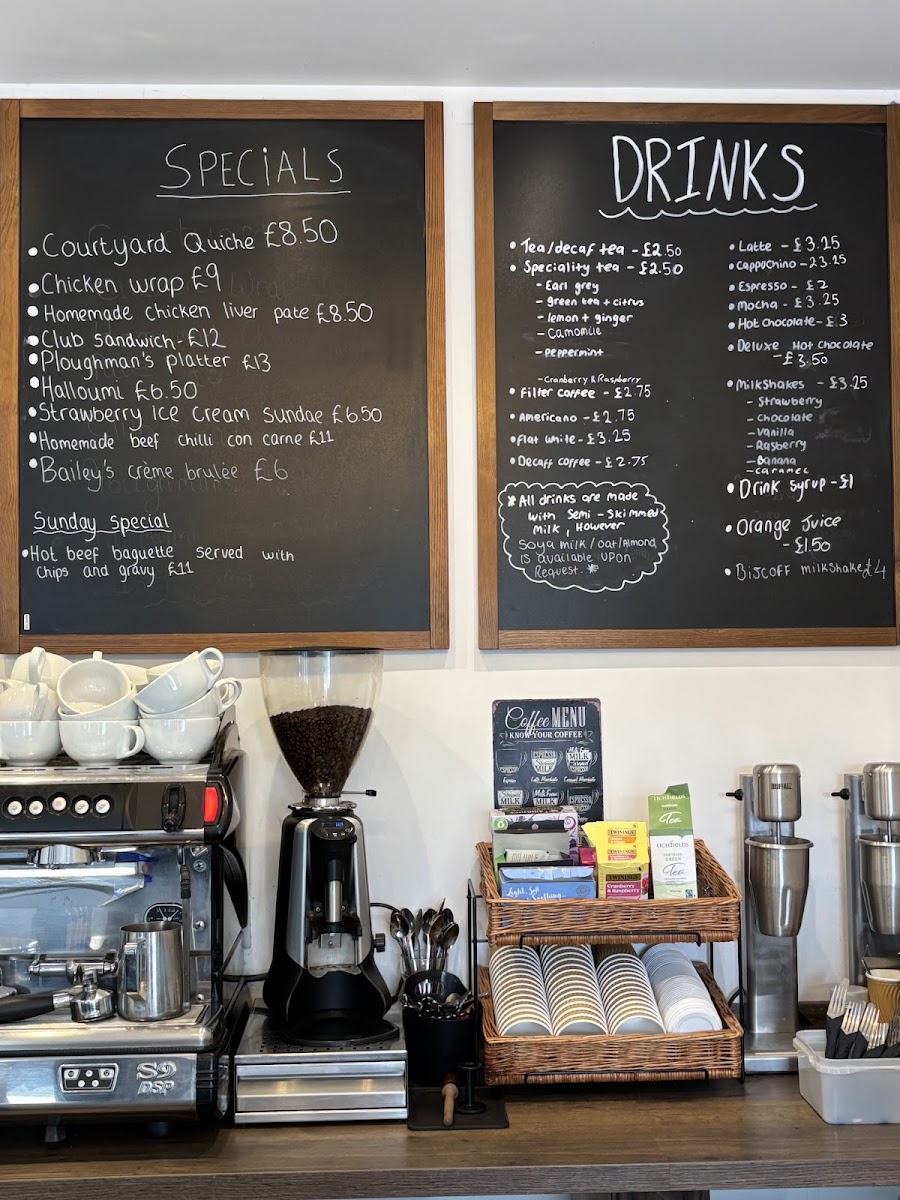 SPECiALS
Courtyard Quiche £8.50
Chicken wrap £9
Homemade chicken liver pate £8.50
Club sandwich - £12
Ploughman's platter £13
Halloumi £6.50
Strawberry Ice Cream Sundae £6.50
Homemade beef chilli con carne £11
Bailey's crème brulée £6
Sunday special
Hot beef baguette served with
chips and gravy £11
DRINKS
Tea/decaf tea - £2.50
Speciality tea - £2.50
- Earl grey
- green tea + citrus
- lemon + ginger
- camomile
- peppermint
- Cranberry & Raspberry
Filter coffee - £2.75
Americano - £2.75
Flat white - £3.25
Decaff coffee - £2.75
* All drinks are made
with Semi-Skimmed
Milk, However
Soya milk/oat/Almond
is available upon
Request. *
Latte - £3.25
Cappuchino - £3.25
Espresso - £2
Mocha - £3.25
Hot chocolate - £3
Deluxe Hot chocolate
- £3.50
Milkshakes - £3.25
- Strawberry
- Chocolate
- Vanilla
- Rasberry
- Banana
- caramel
Drink Syrup - £1
Orange Juice
- £1.50
Biscoff milkshake £4
Coffee MENU
KNOW YOUR COFFEE
ESPRESSO
MILK
TWININGS
TWININGS
Cranberry &
Raspberry
LICHFIELDS
Tea
LICHFIELDS
GREEN
Tea
Light, Soft
Soothing
S9
DSP